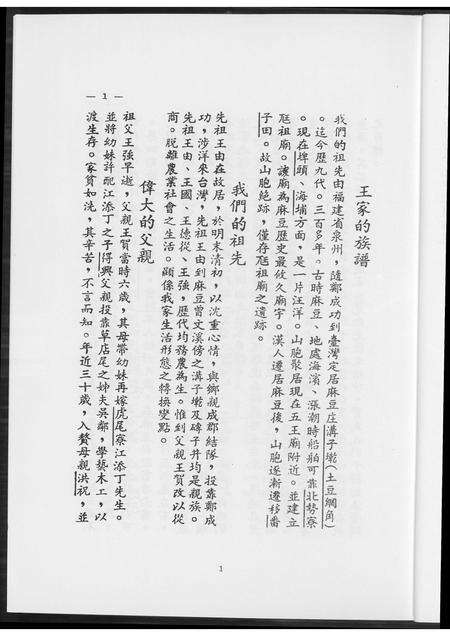 王家的族譜
我們的祖先由福建省泉州，隨鄭成功到臺灣定居麻豆庄溝子墘（土豆網角）
。迄今歷九代。三百多年。古時麻豆、地處海濱、漲潮時船舶可靠北勢寮
。現在埤頭、海埔方面，是一片汪洋。山胞聚居現在五王廟附近。並建立
尪祖廟。該廟為麻豆歷史最攸久廟宇。漢人遷居麻豆後，山胞逐漸遷移番
子田。故山胞絶跡，僅存尪祖廟之遺跡。
我們的祖先
先祖王由在故居，於明末清初，以沈重心情，與鄉親成群結隊，投靠鄭成
功，涉洋來台灣，先祖王由到麻豆曾文溪傍之溝子墘及碑子井均是親族。
先祖王由、王國、王德從、王強，歷代均務農為生。惟到父親王賀改以從
商。脫離農業社會之生活。頗係我家生活形態之轉換變點。
偉大的父親
祖父王強早逝，父親王賀當時六歲，其母帶幼妹再嫁虎尾寮江添丁先生。
並將幼妹許配江添丁之子得興父親投靠草店尾之姊夫吳鄰，學藝木工，以
渡生存。家貧如洗，其辛苦，不言而知。年近三十歲，入贅母親洪祝，並
— 1 —
1